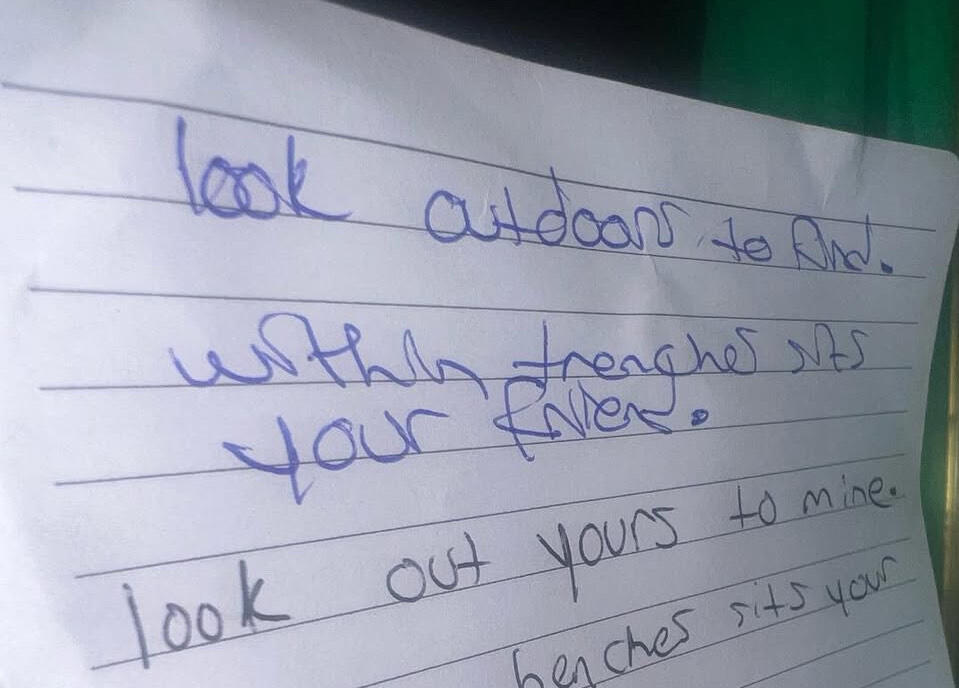 look outdoors to find.
within trenghes sits
your friend.
look out yours to mine.
benches sits your